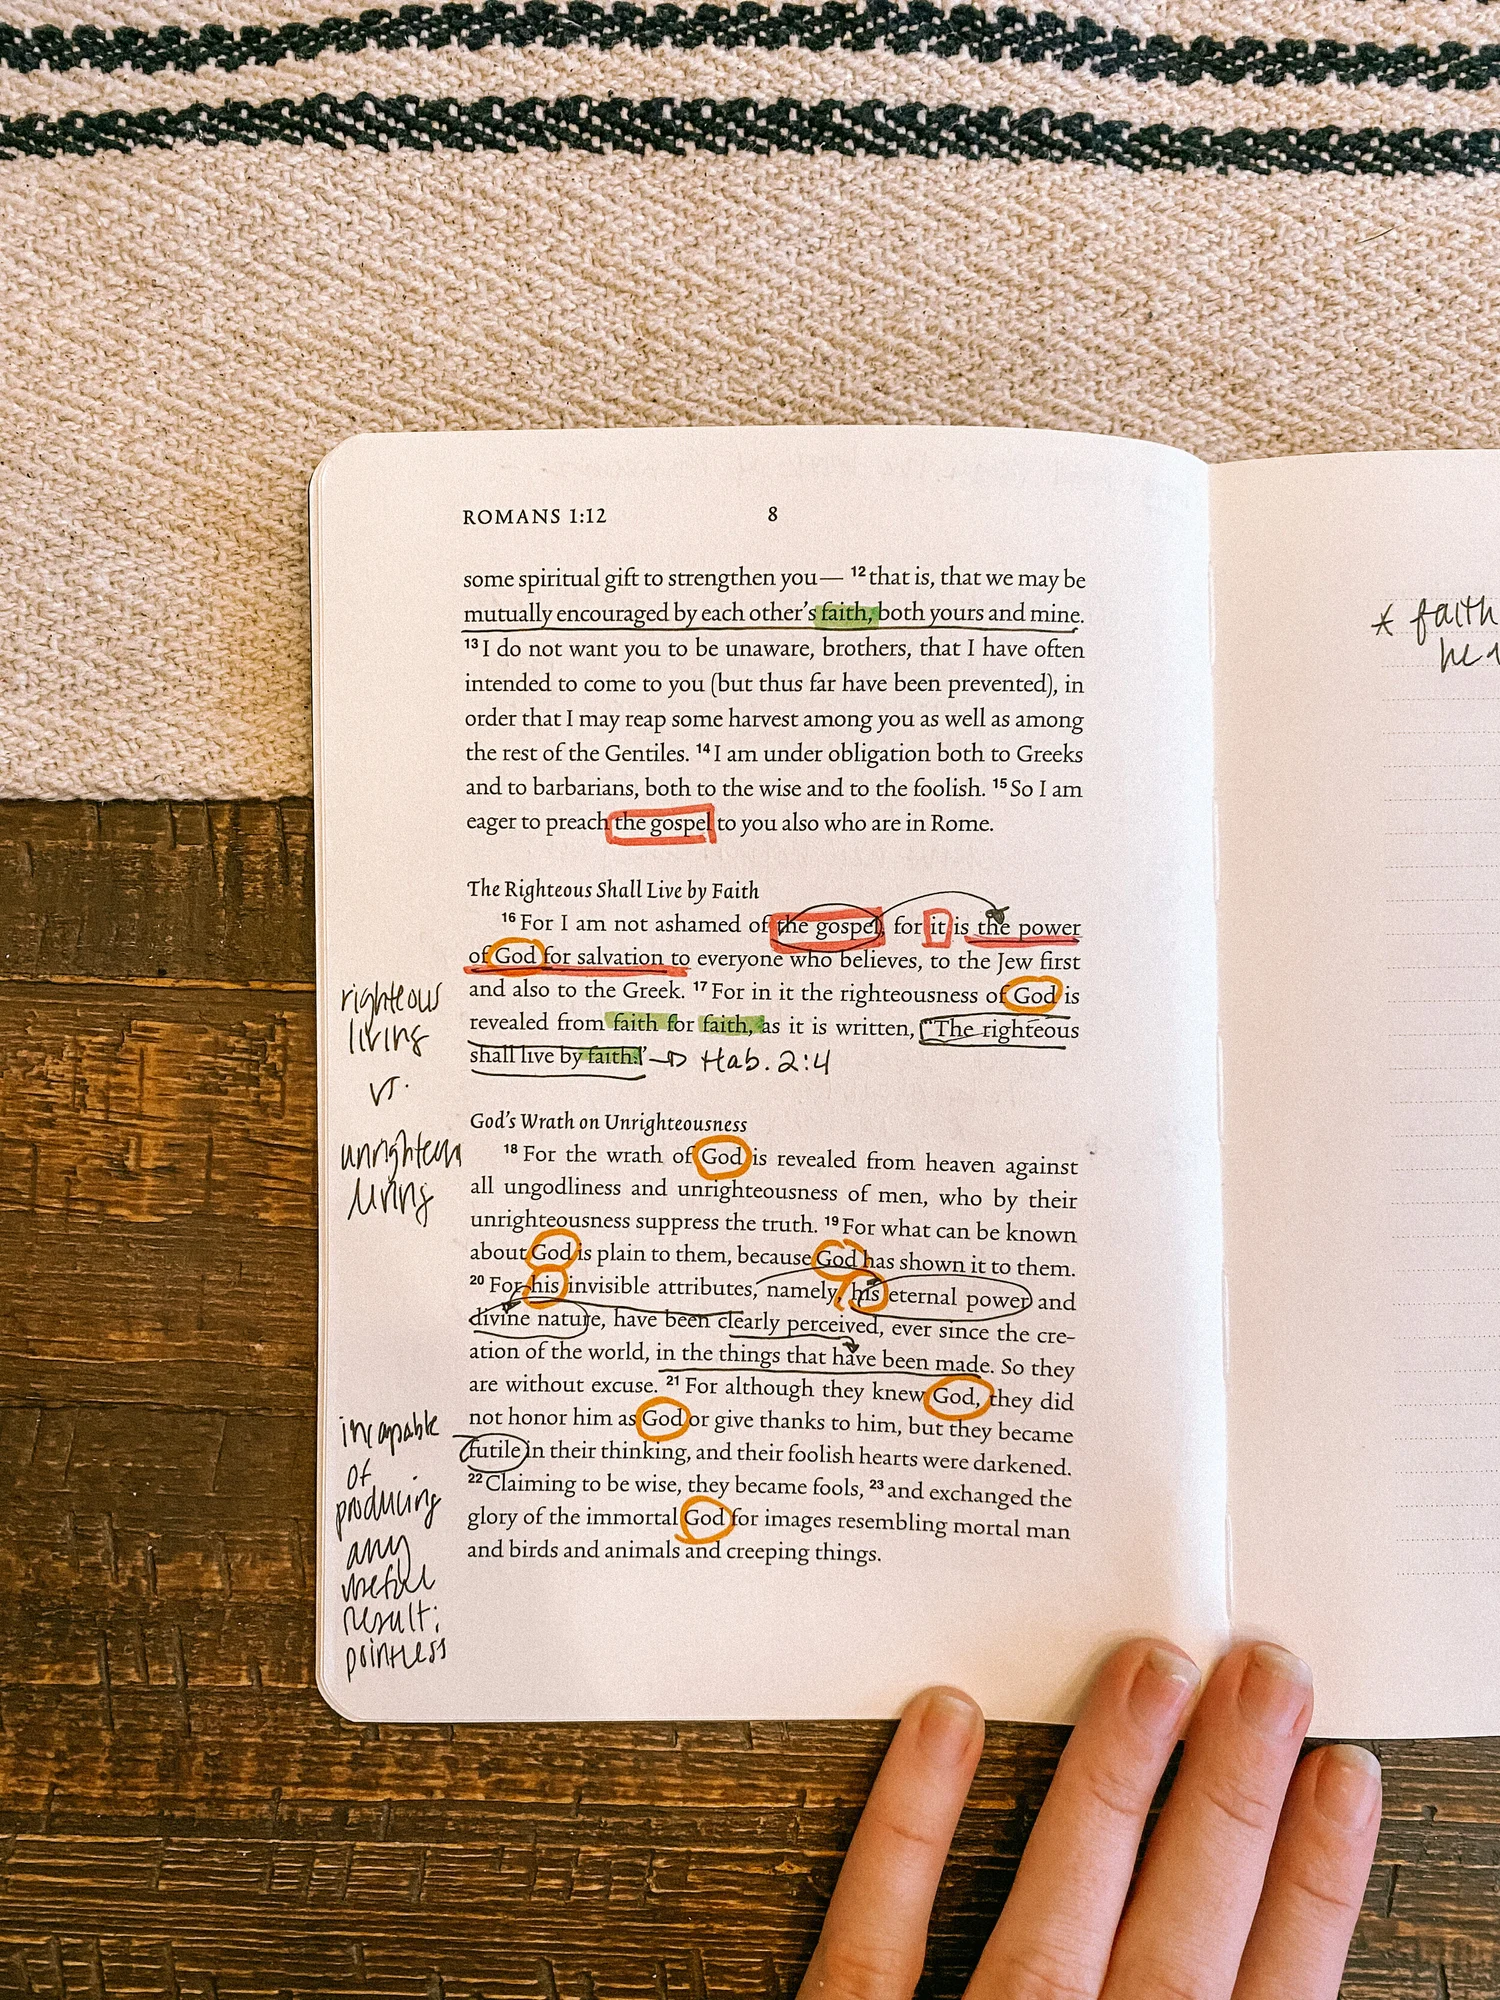 ROMANS 1:12 8
some spiritual gift to strengthen you— 12 that is, that we may be
mutually encouraged by each other's faith, both yours and mine.
13 I do not want you to be unaware, brothers, that I have often
intended to come to you (but thus far have been prevented), in
order that I may reap some harvest among you as well as among
the rest of the Gentiles. 14 I am under obligation both to Greeks
and to barbarians, both to the wise and to the foolish. 15 So I am
eager to preach the gospel to you also who are in Rome.
The Righteous Shall Live by Faith
16 For I am not ashamed of the gospel, for it is the power
of God for salvation to everyone who believes, to the Jew first
and also to the Greek. 17 For in it the righteousness of God is
revealed from faith for faith, as it is written, "The righteous
shall live by faith." → Hab. 2:4
God's Wrath on Unrighteousness
18 For the wrath of God is revealed from heaven against
all ungodliness and unrighteousness of men, who by their
unrighteousness suppress the truth. 19 For what can be known
about God is plain to them, because God has shown it to them.
20 For his invisible attributes, namely, his eternal power and
divine nature, have been clearly perceived, ever since the cre-
ation of the world, in the things that have been made. So they
are without excuse. 21 For although they knew God, they did
not honor him as God or give thanks to him, but they became
futile in their thinking, and their foolish hearts were darkened.
22 Claiming to be wise, they became fools, 23 and exchanged the
glory of the immortal God for images resembling mortal man
and birds and animals and creeping things.
righteous
living
vs.
unrighteous
living
incapable
of
producing
any
useful
result;
pointless
* faith